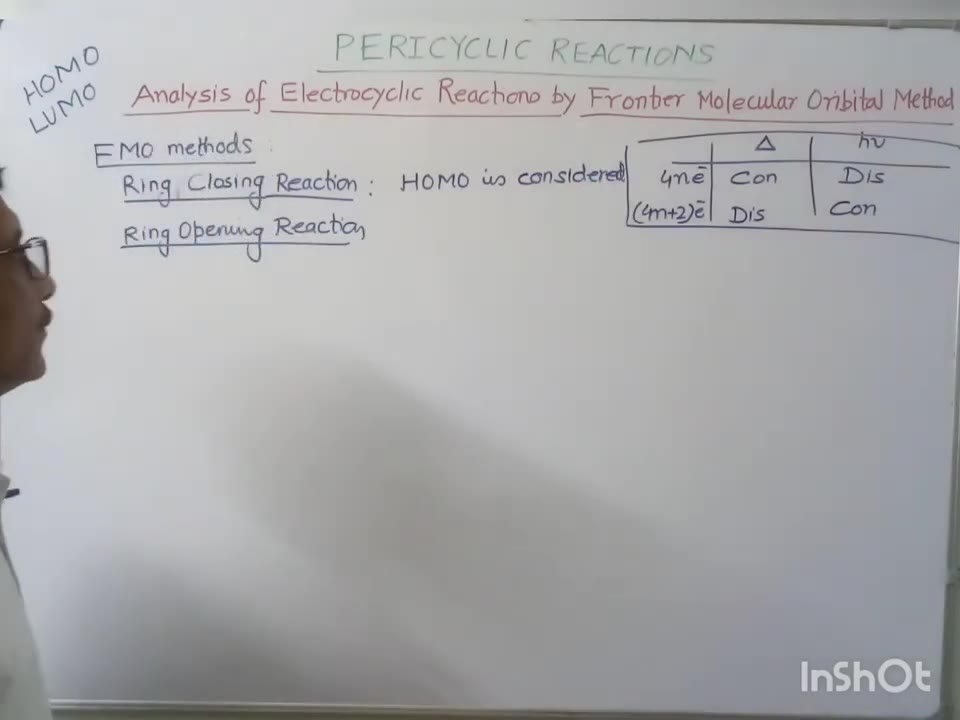 PERICYCLIC REACTIONS
HOMO
LUMO
Analysis of Electrocyclic Reactions by Frontier Molecular Oribital Method
FMO methods:
Ring Closing Reaction: HOMO is considered
Ring Opening Reaction
Δ hν
4nē Con Dis
(4n+2)ē Dis Con
InShOt